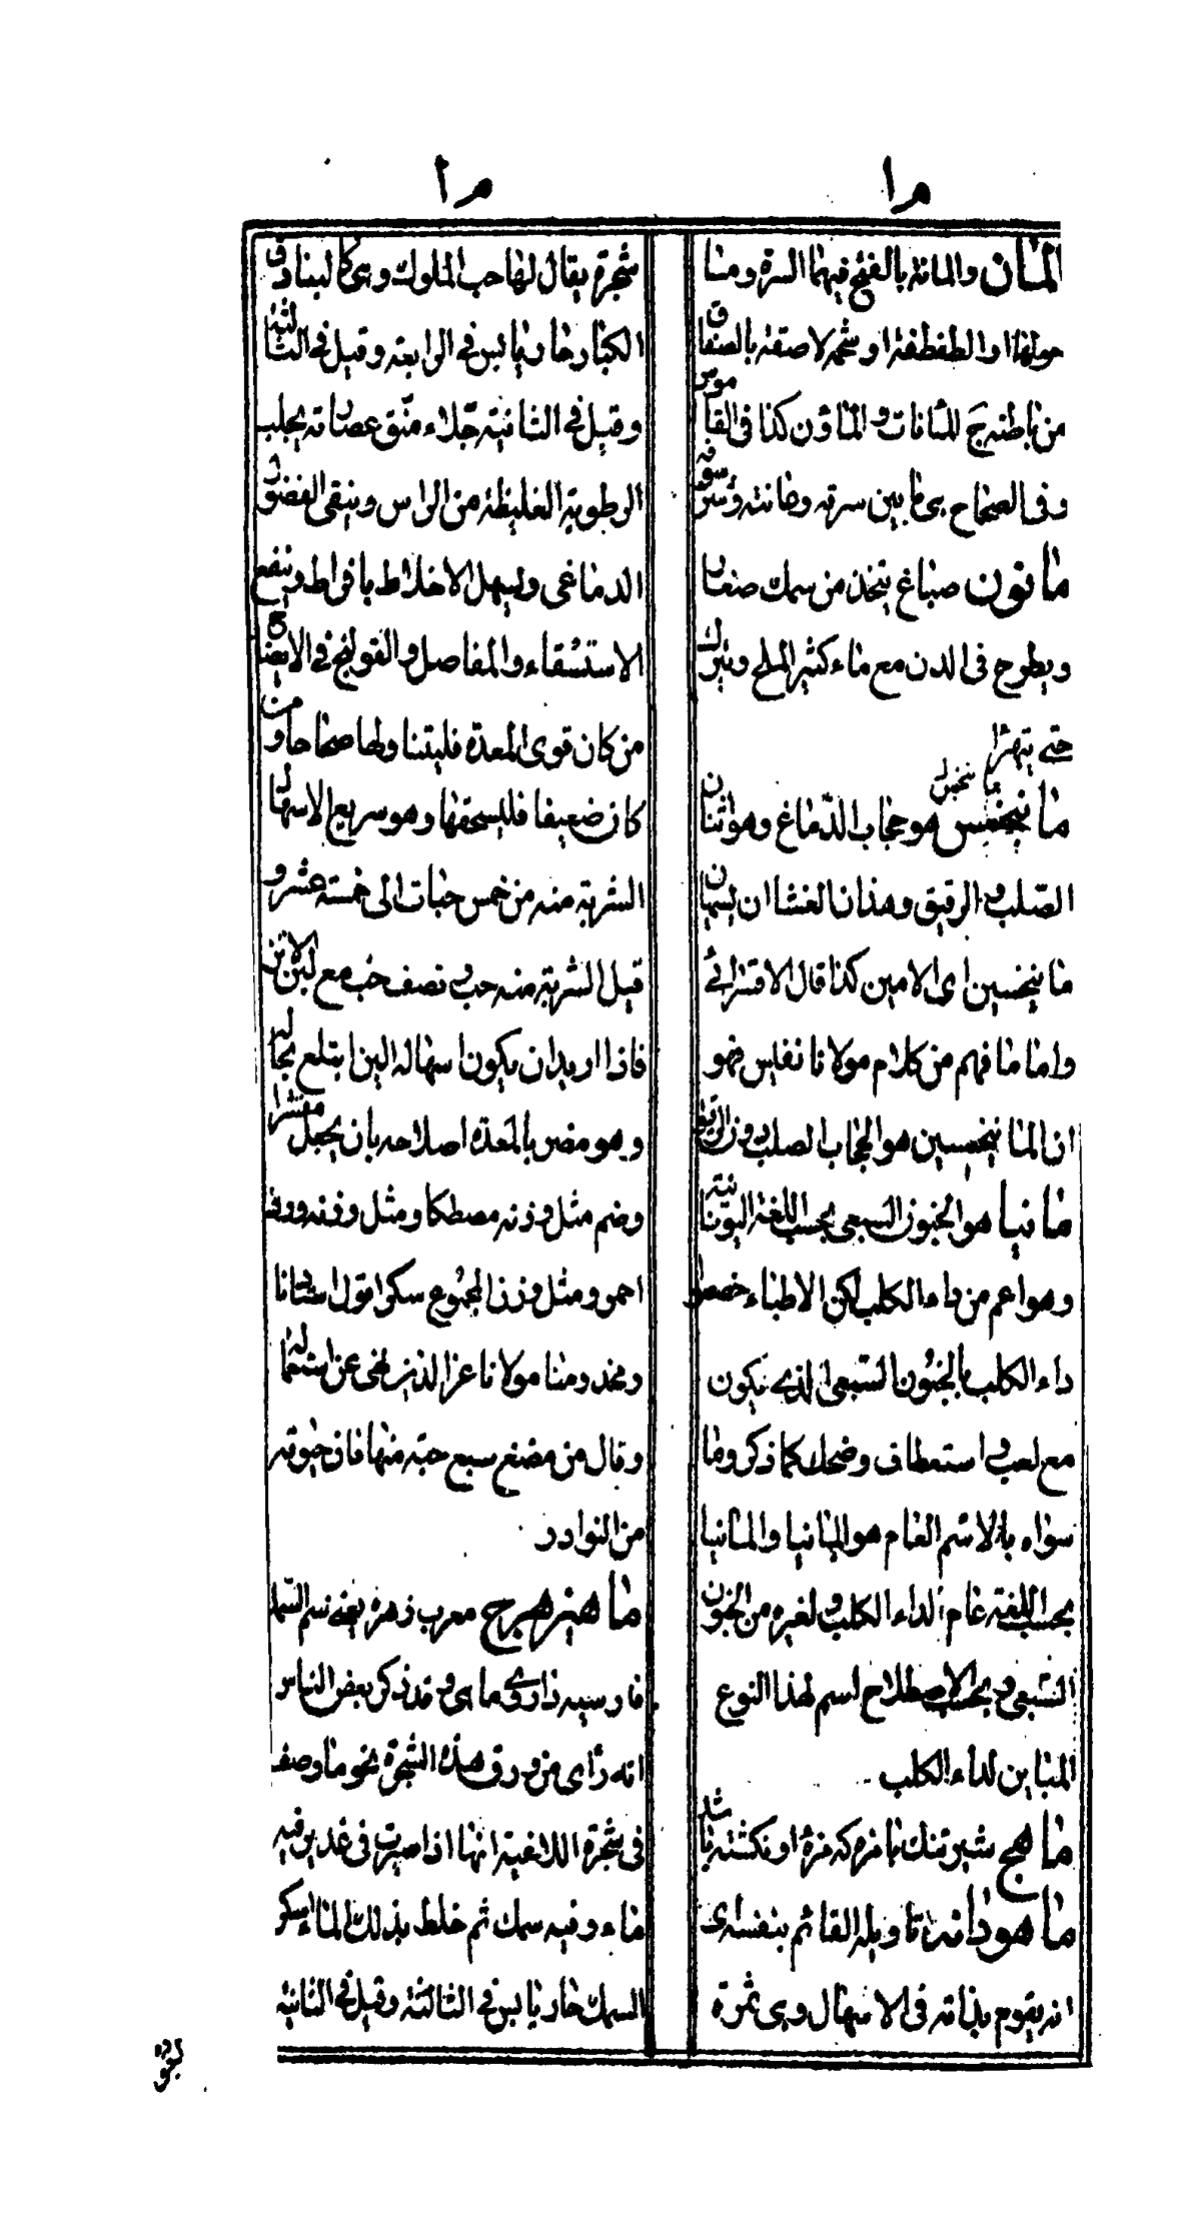 م ا
المأن والمأنة بالفتح فيهما السرة وما
حولها او الطفطفة او شحمة لاصقة بالصفاق
من باطنه ج المأنات و المأؤن كذا فى القاموس
وفى الصحاح هى ما بين سرته وعانته وشرسوفه
مانون صباغ يتخذ من سمك صغار
ويطرح فى الدن مع ماء كثير الملح ويترك
حتى يتهرا
مانيخس هو حجاب الدماغ وهو اثنان
الصلب و الرقيق وهذان الغشاان يسميان
مانيخسين اى الامين كذا قال الاقسرائى
واما ما فهم من كلام مولانا نفيس فهو
ان المانيخسين هو الحجاب الصلب دون الرقيق
مانيا هو الجنون السبعى بحسب اللغة اليونانية
وهو اعم من داء الكلب لكن الاطباء خصصوا
داء الكلب بالجنون السبعى الذى يكون
مع لعب و استعطاف وضحك كما ذكر وما
سواه بالاسم العام هو المانيا والمانيا
بحسب اللغة عام لداء الكلب و لغيره من الجنون
السبعى و بحسب الاصطلاح اسم لهذا النوع
المباين لداء الكلب
ماهج شير تنك بامزه كه مزهٔ او نكشته باشد
ماهودانه تاويله القائم بنفسه اى
انه يقوم بذاته فى الاسهال وهى ثمرة
م ا
شجرة يقال لها حب الملوك وهى كالبنادق
الكبار حار يابس فى الرابعة وقيل فى الثالثة
وقيل فى الثانية جلاء منق عصارته يجلب
الرطوبة الغليظة من الراس وينقى الفضول
الدماغى ويسهل الاخلاط بافراط وينفع
الاستسقاء والمفاصل و القولنج فى الايضاح
من كان قوى المعدة فليتناولها صحاحا ومن
كان ضعيفا فليسحقها وهو سريع الاسهال
الشربة منه من خمس حبات الى خمسة عشر و
قيل الشربة منه حب و نصف حب مع لبن الاتن
فاذا اريد ان يكون اسهاله الين ابتلع بحاله
وهو مضر بالمعدة اصلاحه بان يجعل مقشرا
وضم مثل وزنه مصطكا ومثل وزنه ورد
احمر ومثل وزن المجموع سكرا قول استادنا
ومخدومنا مولانا عز الدين نهى عن استعماله
وقال من مضغ سبع حبة منها فان حيوته
من النوادر
ماهيزهرج معرب زهره يعنى سم السمك
فارسيه داروى ماهى و قد ذكر بعض الناس
انه راى من ورق هذه الشجرة نحو ما وصف
فى شجرة اللاغية انها اذا صيرت فى غدير فيه
ماء وفيه سمك ثم خلط بذلك الماء اسكر
السمك حار يابس فى الثالثة وقيل فى الثانية